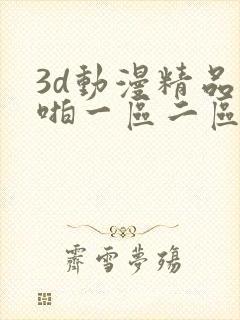 3d動漫精品
啪一區二區
霽雪夢殤